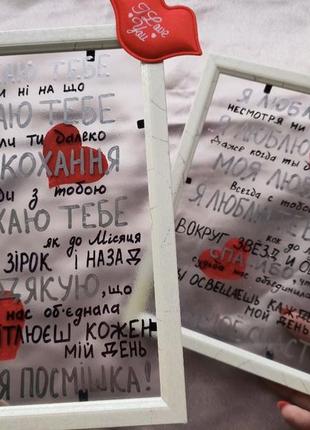 I Love
You
АЮ ТЕБЕ
и ні на що
АЮ ТЕБЕ
ли ти далеко
КОХАННЯ
ди з тобою
ХАЮ ТЕБЕ
як до Місяця
ЗІРОК І НАЗАД
ДЯКУЮ, що
нас об'єднала
ІТЛЮЄШ КОЖЕН
МІЙ ДЕНЬ
Я ПОСМІШКА!
Я ЛЮБЛ
НЕСМОТРЯ НИ
Я ЛЮБЛЮ
Даже когда ты д
МОЯ ЛЮБО
Всегда с тобо
Я ЛЮБЛЮ
как до Л
ВОКРУГ ЗВЕЗД И О
СПАСИБО
судьба нас объединила
И ОСВЕЩАЕШЬ КАЖД
МОЙ ДЕНЬ